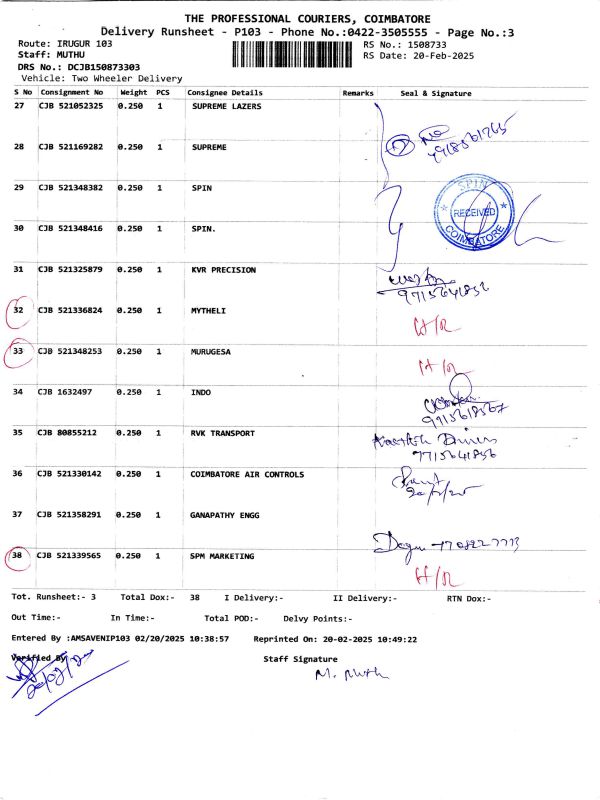 THE PROFESSIONAL COURIERS, COIMBATORE
Delivery Runsheet - P103 - Phone No.:0422-3505555 - Page No.:3
Route: IRUGUR 103 RS No.: 1508733
Staff: MUTHU RS Date: 20-Feb-2025
DRS No.: DCJB150873303
Vehicle: Two Wheeler Delivery
S No Consignment No Weight PCS Consignee Details Remarks Seal & Signature
27 CJB 521052325 0.250 1 SUPREME LAZERS
28 CJB 521169282 0.250 1 SUPREME
29 CJB 521348382 0.250 1 SPIN
SPIN
RECEIVED
COIMBATORE
30 CJB 521348416 0.250 1 SPIN.
31 CJB 521325879 0.250 1 KVR PRECISION
9715641856
32 CJB 521336824 0.250 1 MYTHELI
H/R
33 CJB 521348253 0.250 1 MURUGESA
H/R
34 CJB 1632497 0.250 1 INDO
35 CJB 80855212 0.250 1 RVK TRANSPORT
9715641856
36 CJB 521330142 0.250 1 COIMBATORE AIR CONTROLS
20/2/25
37 CJB 521358291 0.250 1 GANAPATHY ENGG
38 CJB 521339565 0.250 1 SPM MARKETING
H/R
Tot. Runsheet:- 3 Total Dox:- 38 I Delivery:- II Delivery:- RTN Dox:-
Out Time:- In Time:- Total POD:- Delvy Points:-
Entered By :AMSAVENIP103 02/20/2025 10:38:57 Reprinted On: 20-02-2025 10:49:22
Verified By Staff Signature
M. Muth